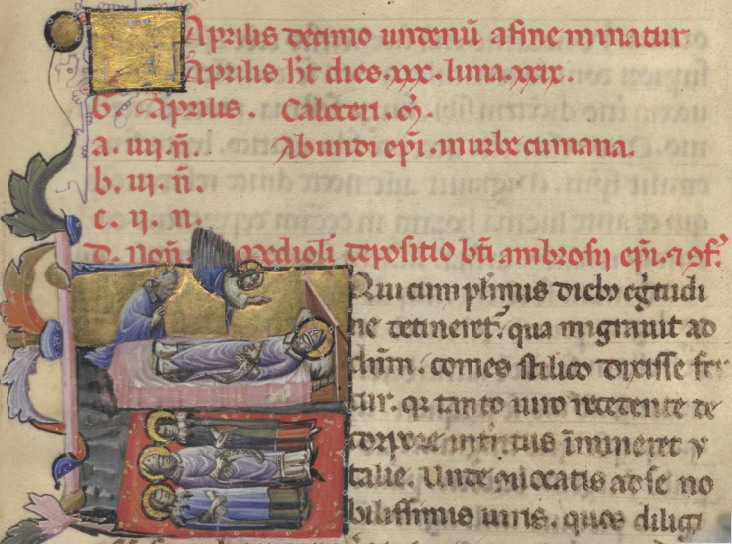 Aprilis decimo undenũ a fine minatur
Aprilis ħt dies .xxx. luna .xxix.
b. Aprilis. Caloceri. ɱ̃.
a. iiij. ñ. Abundi ep̃i. in urbe cumana.
b. iij. ñ.
c. ij. n.
d. Noñ. Mediolĩ depositio bt̃i ambrosij ep̃i. ⁊ ꝯf̃.
Qui cum pl̃imis dieb; eg̃tudi
ne detineret̃. qua migrauit ad
dñm. comes stilico dixisse fer
tur. qđ tanto uiro recedente de
corpore interitus ĩmineret y
talie. Unde uiocatis ad se no
bilissimis uiris. quos diligi